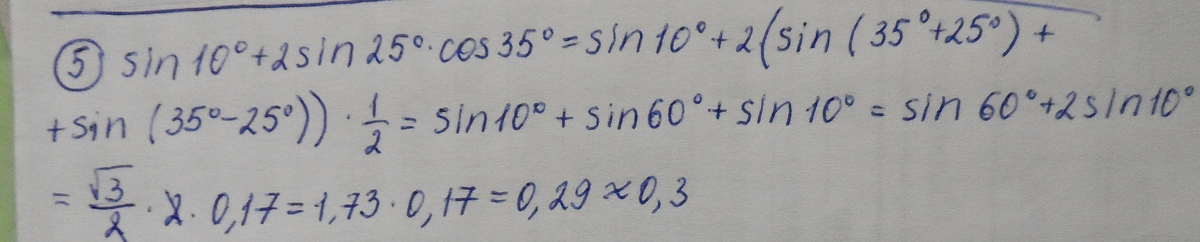 ⑤ sin 10° + 2 sin 25° · cos 35° = sin 10° + 2(sin (35° + 25°) +
+ sin (35° - 25°)) · 1/2 = sin 10° + sin 60° + sin 10° = sin 60° + 2 sin 10°
= √3/2 · 2 · 0,17 = 1,73 · 0,17 = 0,29 ≈ 0,3